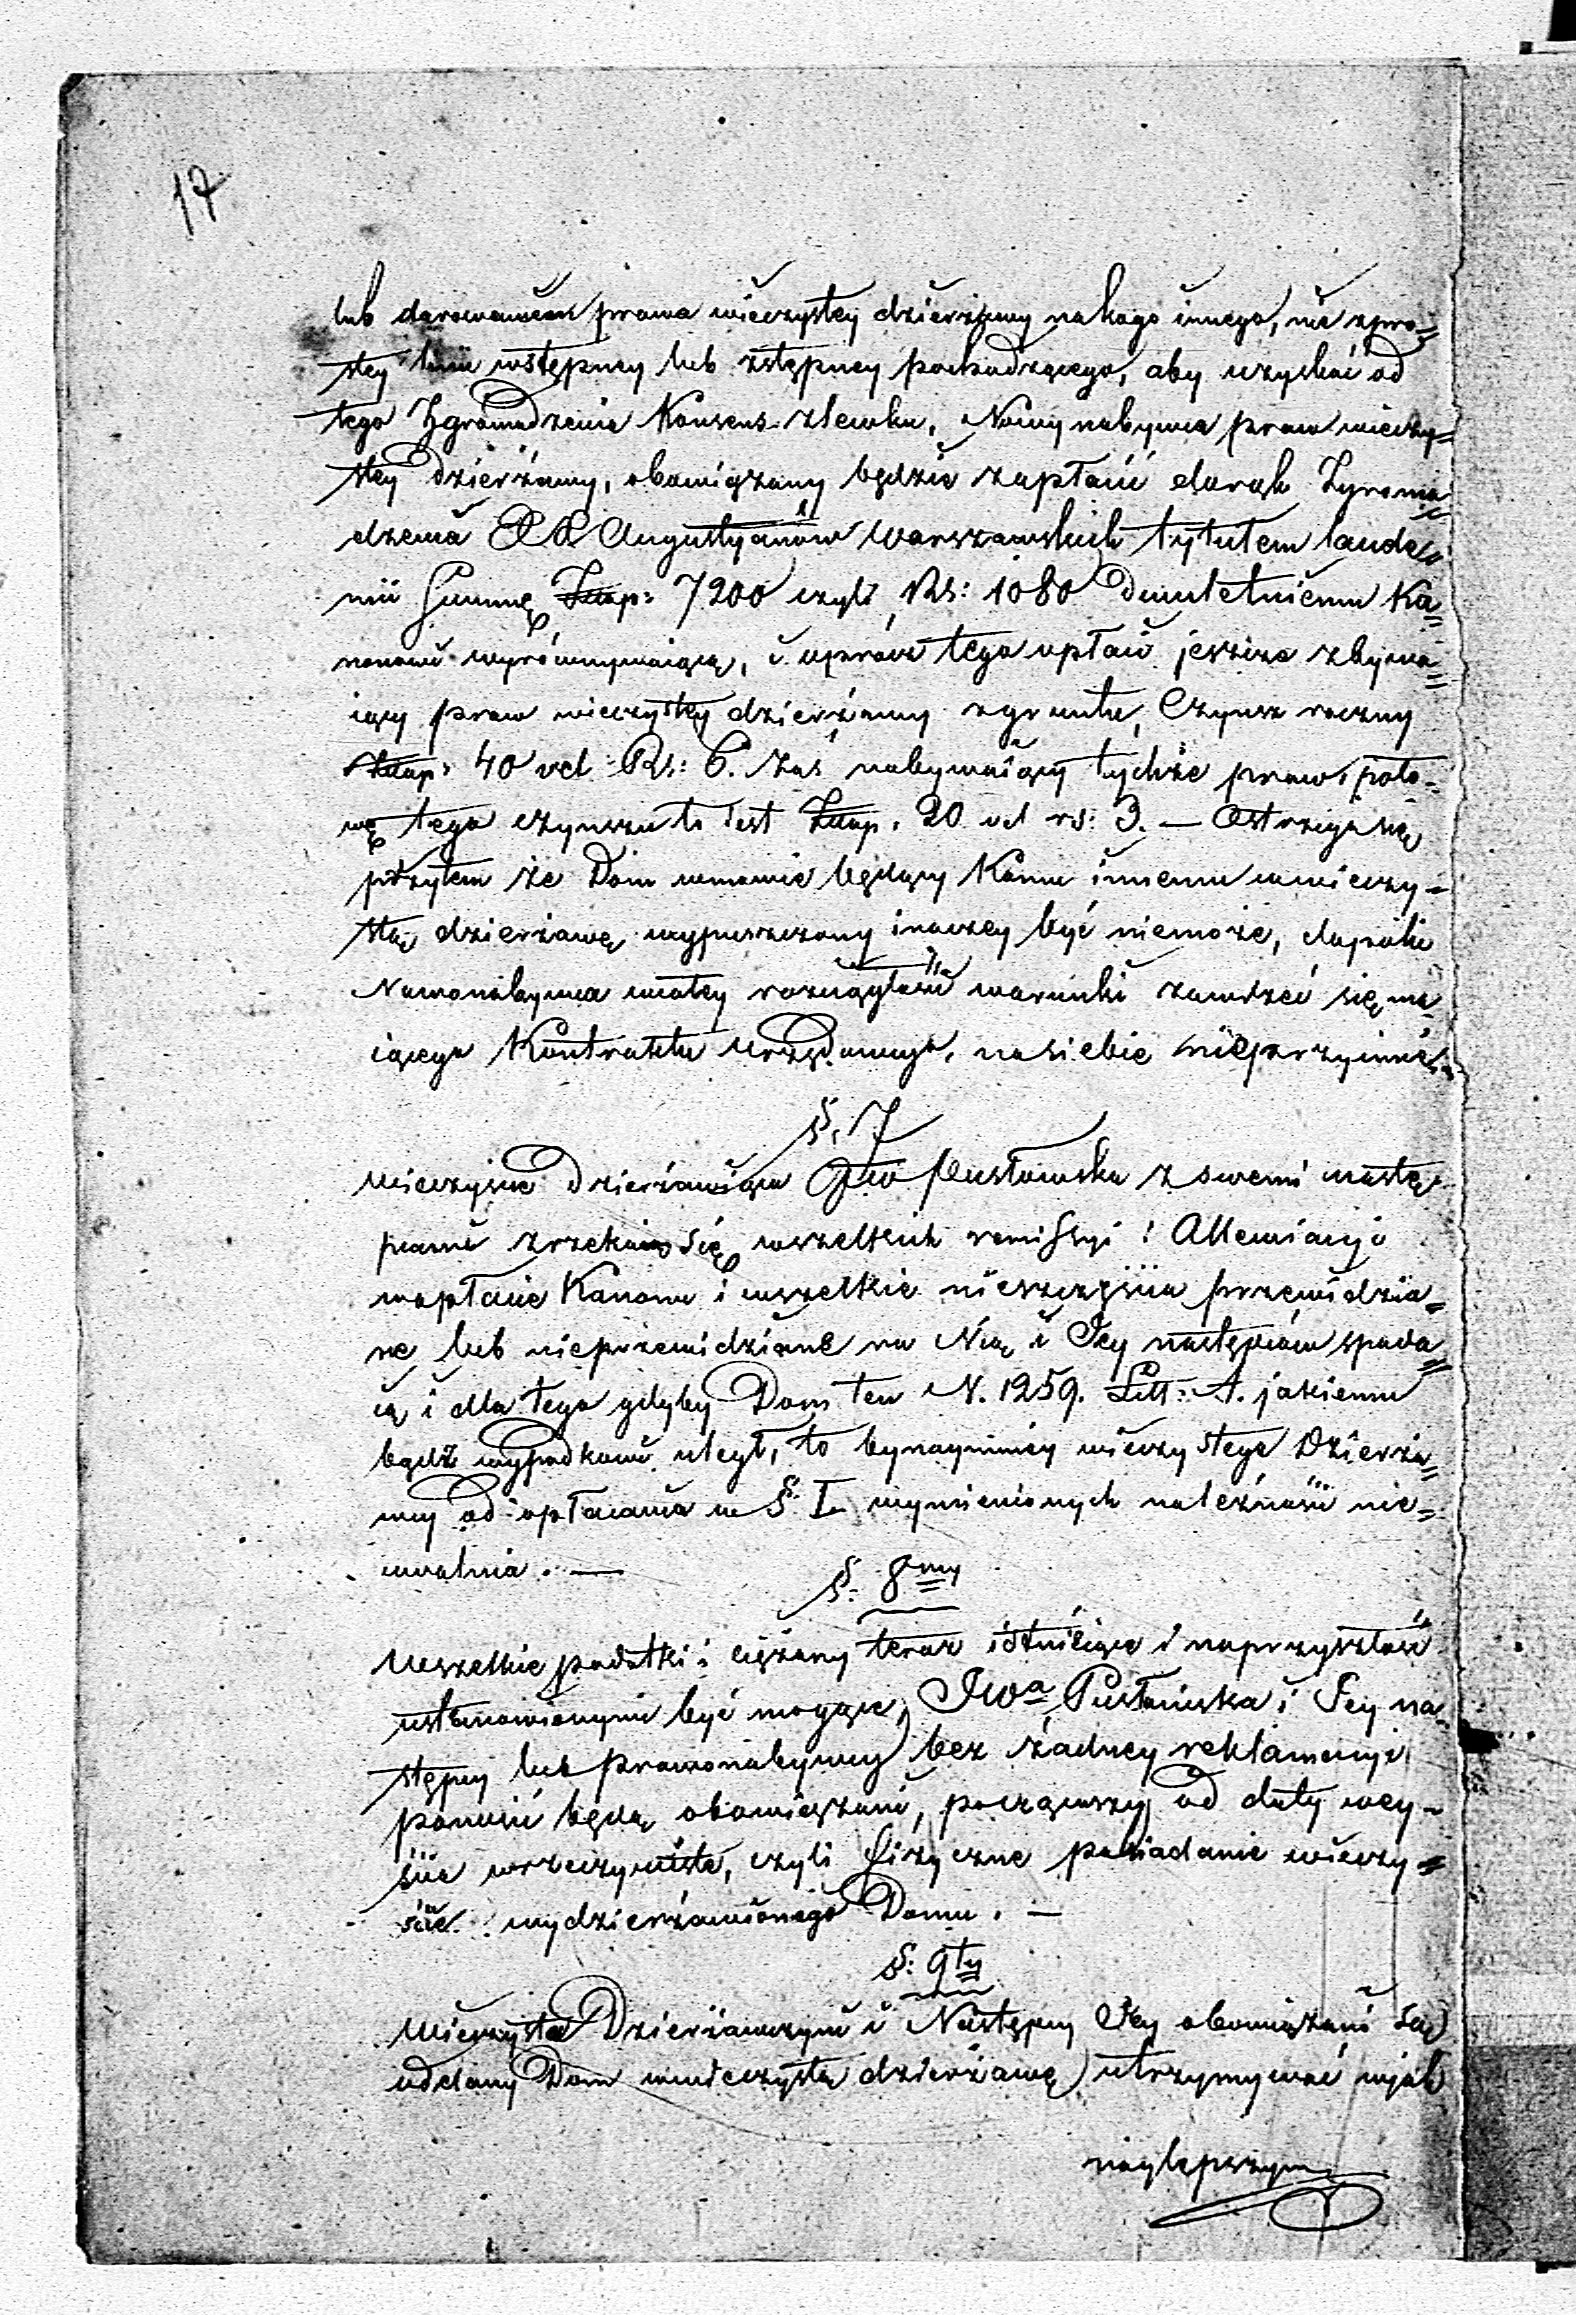 17
lub darowaniem prawa wieczystey dzierżawy na kogo innego, nie z pro=
stey linii wstępney lub zstępney pochodzącego, aby uzyskać od
tego Zgromadzenia Konsens zlewku, Nowy nabywca praw wieczy=
stey Dzierżawy, obowiązany będzie zapłacić Zgroma=
dzenia Augustyanów Warszawskich tytułem laude=
mii Summę Złłp: 7200 czyli RS: 1080 Dwuletniemu Ka=
nonowi wyrównywaiącą, i oprócz tego opłaci jeszcze zbywa=
iący praw wieczystey dzierżawy z gruntu, Czynsz roczny
Złłp: 40 vel Rs: 6. zaś nabywaiący tychże praw, poło=
wę tego czynszu to iest Złłp. 20 vel rs: 3. — Ostrzega się
przytem że Dom w mowie będący Komu innemu w wieczy=
stą dzierżawę wypuszczony inaczey być niemoże, dopóki
Nowonabywca w całey rozciągłości warunki zawrzeć się ma=
iącego Kontraktu Urzędowego, na siebie nieprzyimie.
§. 7
Wieczysta Dzierżawiąca JWa Pusłowska z swemi nastę=
pcami zrzeka się wszelkich remissyi i Allewiacyi
w opłacie Kanonu i wszelkie nieszczęścia przewidzia=
ne lub nieprzewidziane na Nią i Jey następców spada=
ią i dla tego gdyby Dom ten N. 1259. Litt: A. jakiemu
bądź wypadkowi uległ, to bynaymniey wieczystego Dzierża=
wcy od opłacania w §. I. wymienionych należności nie=
uwalnia. —
§. 8my
Wszelkie podatki i ciężary teraz istnieiące i na przyszłość
ustanowionymi być mogące, JWa Pusłowska i Jey na=
stępcy lub prawonabywcy bez żadney reklamacyi
ponosić będą obowiązani, począwszy od daty wey=
ścia w rzeczywiste, czyli fizyczne posiadanie wieczy=
ście wydzierżawionego Domu. —
§. 9ty
Wieczysta Dzierżawczyni i Następcy Jey obowiązani są
oddany Dom w wieczystą dzierżawę utrzymywać w jak
naylepszym